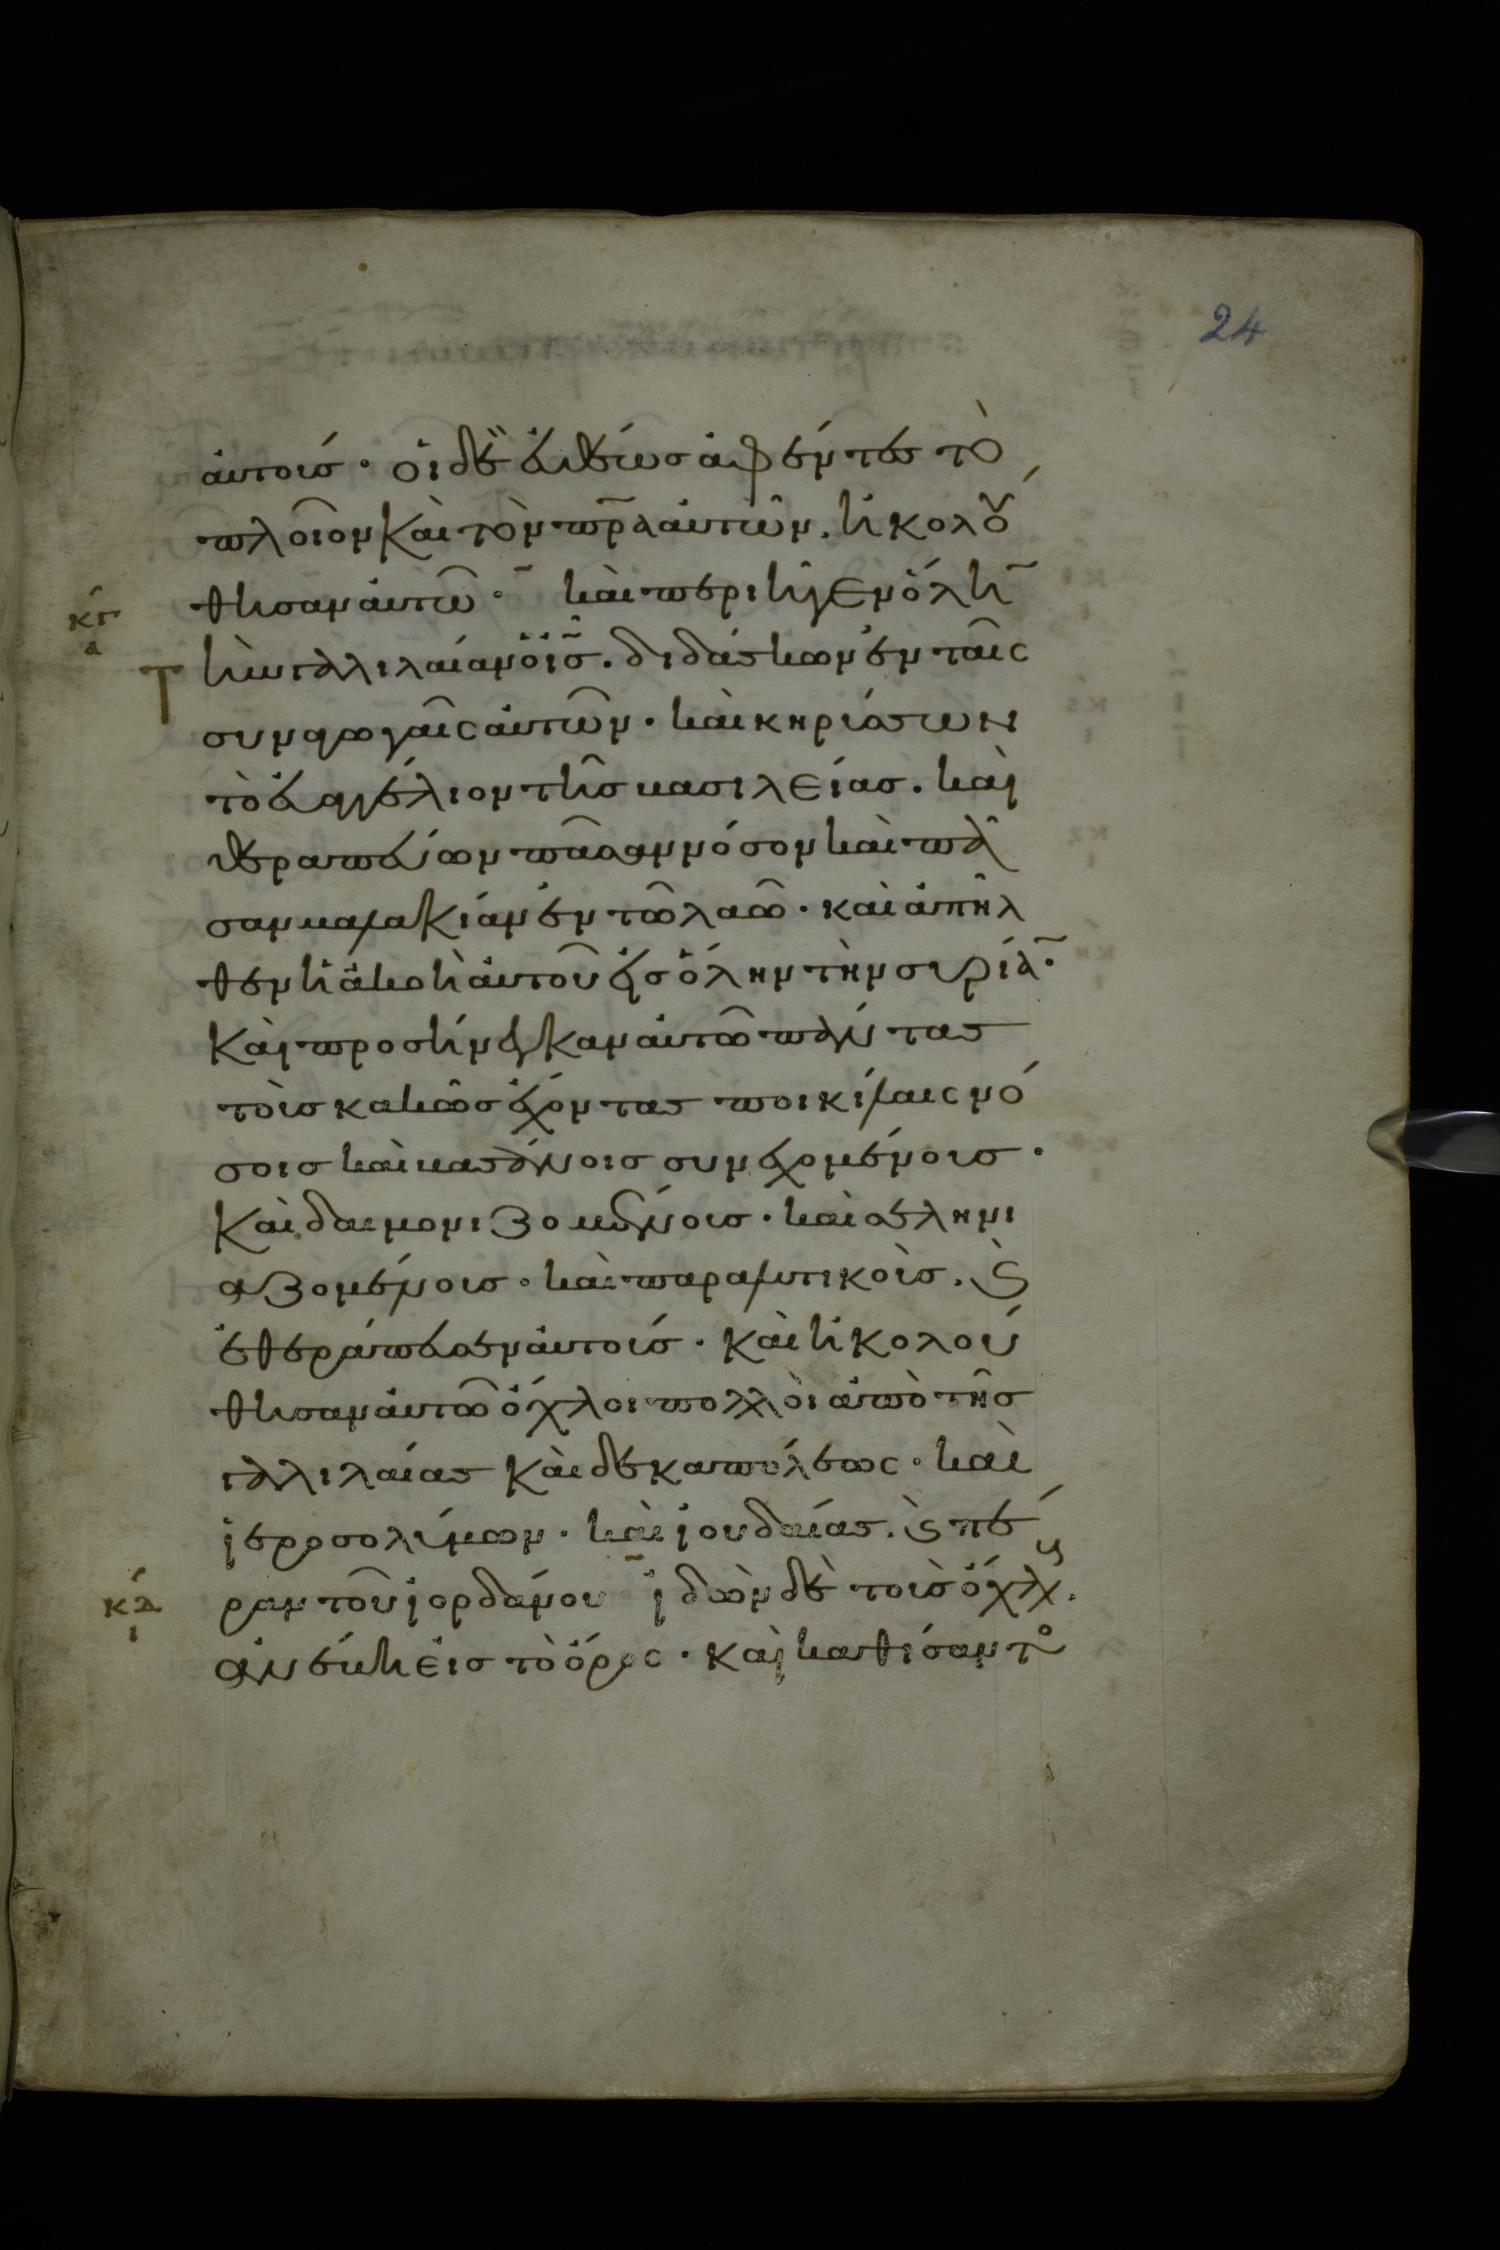 24
ἀυτοισ· ὁι δὲ ἐυθέωσ ἀφέντεσ τὸ
πλοῖον καὶ τὸν πρ̅α ἀυτῶν. ἠκολού
θησαν ἀυτῶ· καὶ περιῆγεν ὅλη̅
κγ
α
τὴν γαλιλαίαν ὁ ἰς̅. διδάσκων ἐν ταῖς
συναγωγαῖς ἀυτῶν· καὶ κηρύσσων
τὸ ἐυαγγέλιον τῆσ βασιλείασ. καὶ
θεραπεύων πᾶσαν νόσον καὶ πᾶ
σαν μαλακίαν ἐν τῶ λαῶ· καὶ ἀπῆλ
θεν ἡ ἀκοὴ ἀυτοῦ εἰσ ὅλην τὴν συρία̅·
καὶ προσήνεγκαν ἀυτῶ πάντασ
τοὺσ κακῶσ ἔχοντασ ποικίλαις νό
σοισ καὶ βασάνοισ συνεχομένουσ·
καὶ δαιμονιζομένουσ· καὶ σελήνι
αζομένουσ· καὶ παραλυτικοὺσ. ϗ
ἐθεράπευσεν ἀυτούσ· καὶ ἠκολού
θησαν ἀυτῶ ὄχλοι πολλοὶ ἀπὸ τῆσ
γαλιλαίασ καὶ δεκαπόλεως· καὶ
ἱεροσολύμων· καὶ ἰουδαίασ. ϗ πέ
κδ
ι
ραν τοῦ ἰορδάνου ἰδὼν δὲ τοὺσ ὄχλους.
ἀνέβη εἰσ τὸ ὄρος· καὶ καθίσαντο